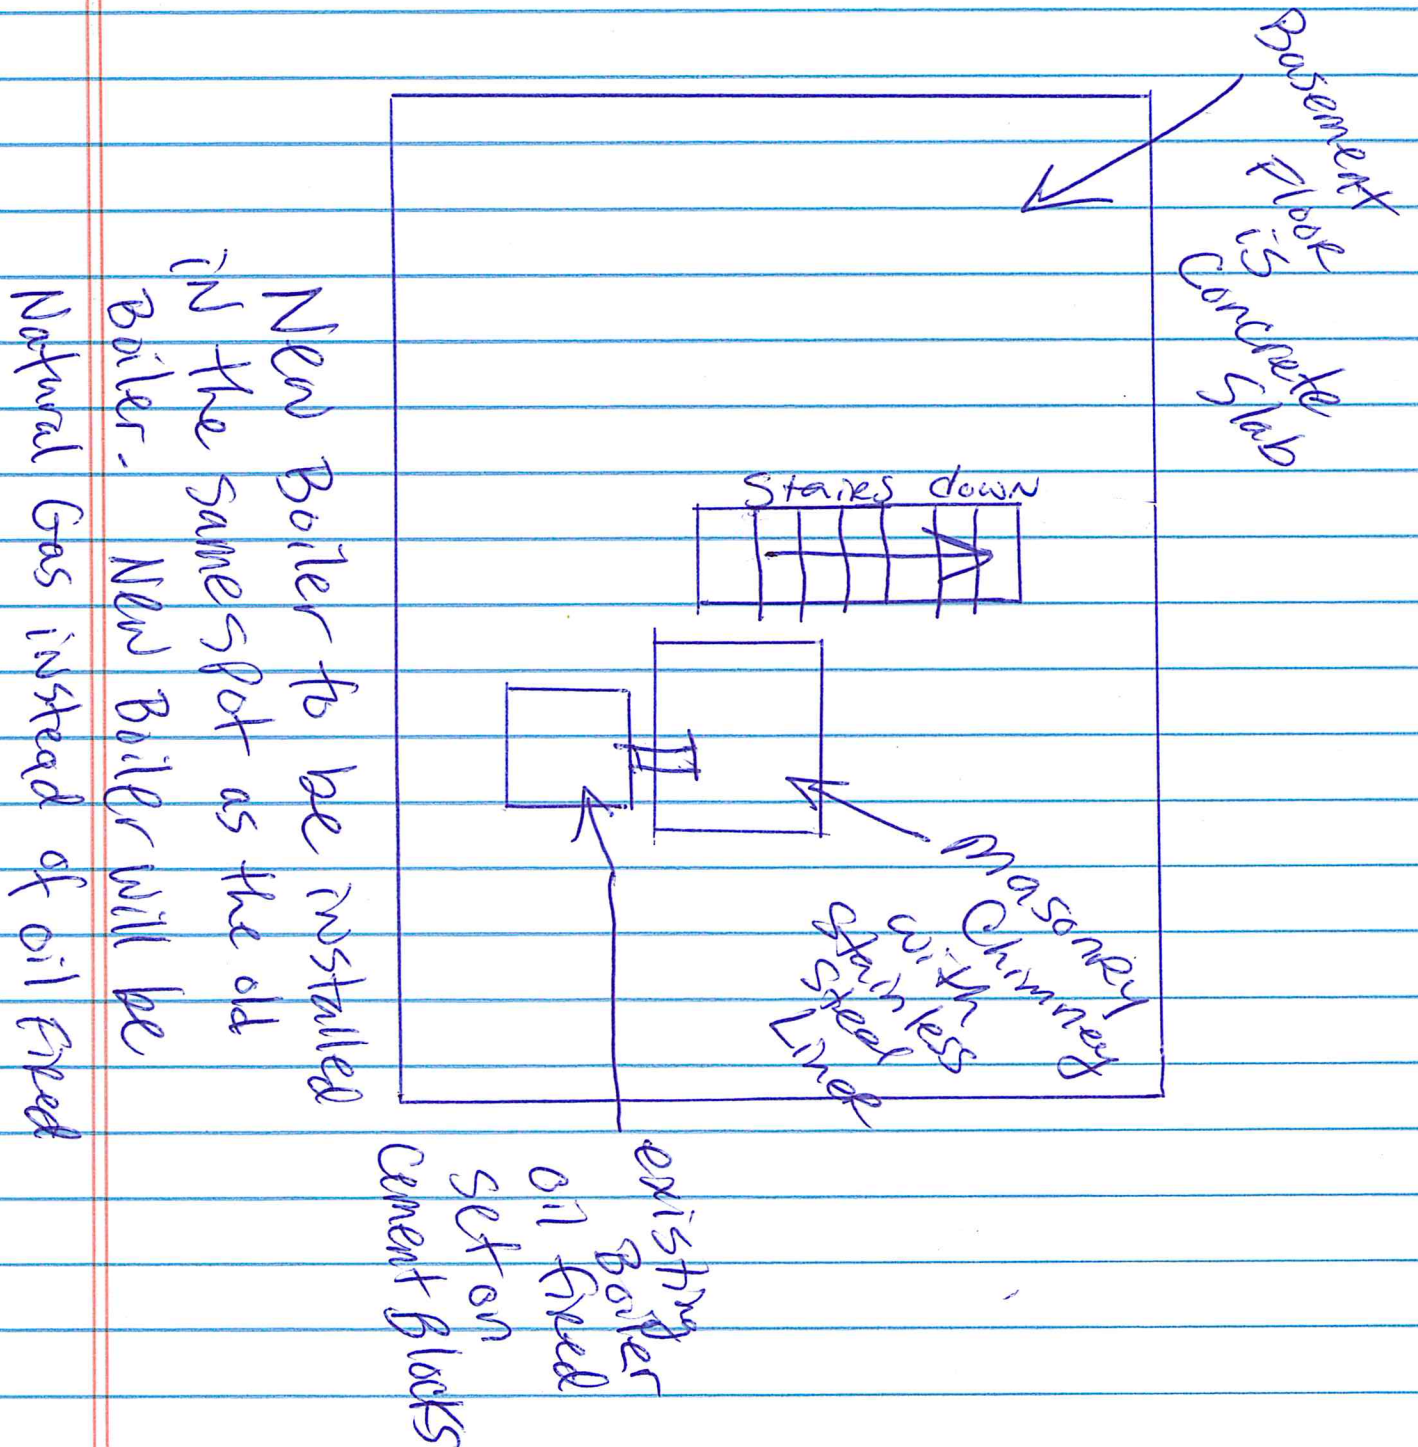 Basement
Floor
is
Concrete
Slab
Stairs down
Masonry
Chimney
with
Stainless
Steel
Liner
existing
Boiler
oil fired
set on
Cement Blocks
New Boiler to be installed
in the same spot as the old
Boiler. New Boiler will be
Natural Gas instead of oil fired